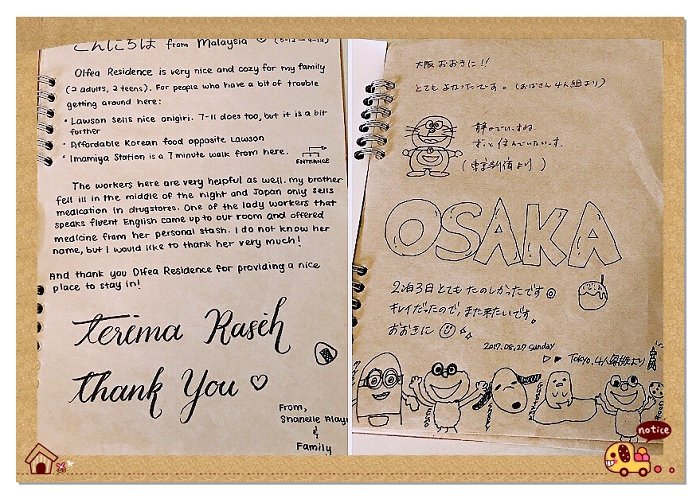 こんにちは from Malaysia
Olfea Residence is very nice and cozy for my family
(2 adults, 2 teens). For people who have a bit of trouble
getting around here:
• Lawson sells nice onigiri. 7-11 does too, but it is a bit
further
• Affordable Korean food opposite Lawson
• Imamiya Station is a 7 minute walk from here.
ENTRANCE
The workers here are very helpful as well. my brother
fell ill in the middle of the night and Japan only sells
medication in drugstores. One of the lady workers that
speaks fluent English came up to our room and offered
medicine from her personal stash. I do not know her
name, but I would like to thank her very much!
And thank you Olfea Residence for providing a nice
place to stay in!
terima Kasih
thank You ♡
From,
Shanelle
&
Family
大阪 おおきに!!
とても よかったです。(おばさん4人組より)
静かでいいですね。
ずっと住んでいたいです。
(東京新宿より)
OSAKA
2泊3日とてもたのしかったです
キレイだったので、また来たいです。
おおきに
2017.08.27 sunday
Tokyo. 4人
notice